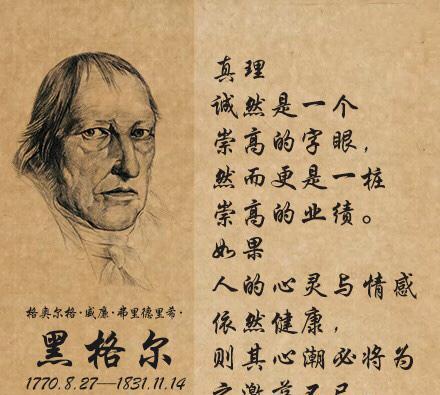 真理
诚然是一个
崇高的字眼，
然而更是一桩
崇高的业绩。
如果
人的心灵与情感
依然健康，
则其心潮必将为
格奥尔格·威廉·弗里德里希·
黑格尔
1770.8.27—1831.11.14